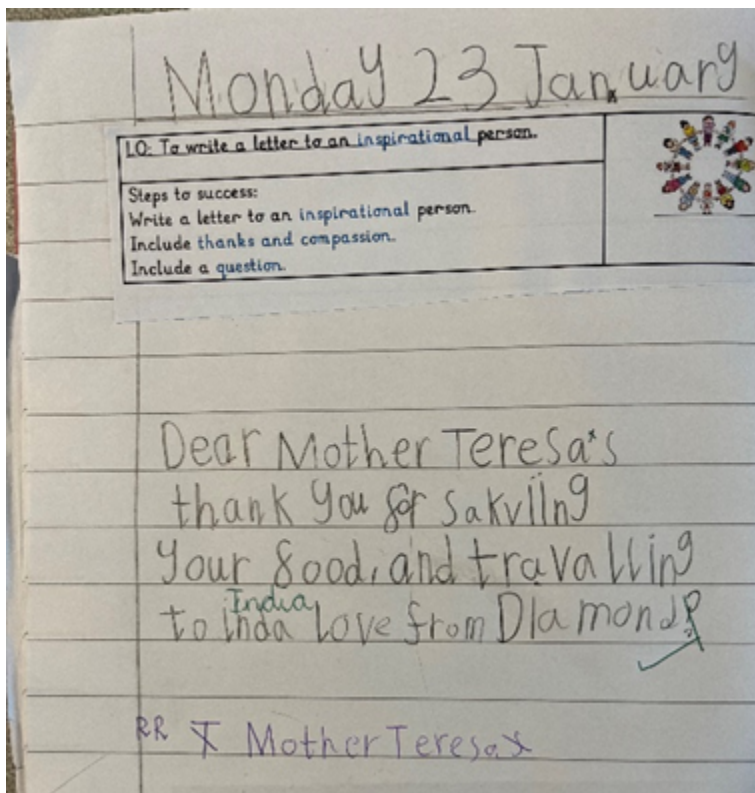 Monday 23 January
LO: To write a letter to an inspirational person.
Steps to success:
Write a letter to an inspirational person.
Include thanks and compassion.
Include a question.
Dear Mother Teresa's
thank you for sakviing
your food, and travalling
India
to inda Love from Diamond
RR T Mother Teresa